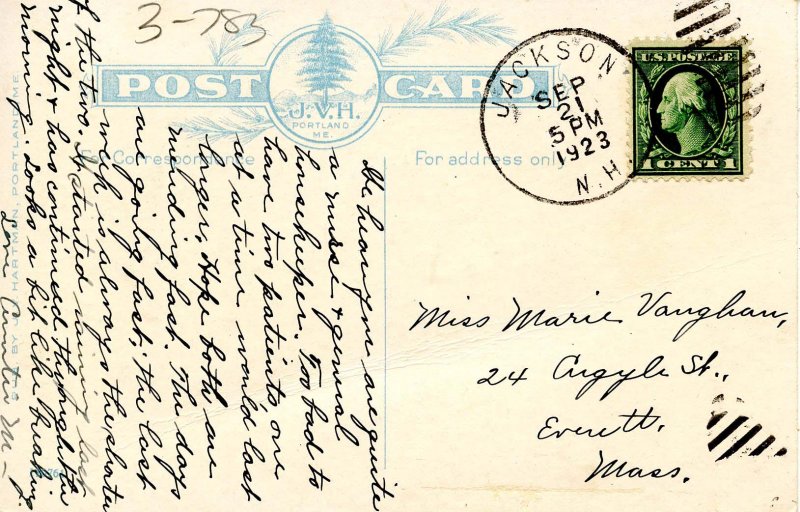 3-783
POST CARD
J.V.H.
PORTLAND
ME.
For Correspondence
For address only
JACKSON
SEP
21
5 PM
1923
N.H.
U.S. POSTAGE
1 CENT 1
We hear you are quite
a nurse & general
housekeeper. Too bad to
have two patients one
at a time would last
longer, Hope both are
mending fast. The days
are going fast; the last
week is always the shorter
of the two. It started raining last
night & has continued throughout the
morning. Looks a bit like breaking.
Love Auntie M–
Miss Marie Vaughan,
24 Argyle St.,
Everett,
Mass.
HARTMAN, PORTLAND, ME.